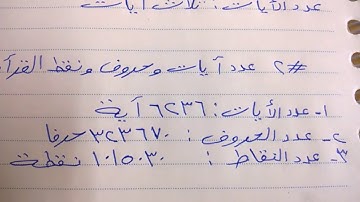 عدد الآيات: ثلاث آيات
#٢ عدد آيات وحروف ونقط القرآ
١- عدد الآيات: ٦٢٣٦ آية
٢- عدد الحروف: ٣٢٣٦٧٠ حرفا
٣- عدد النقاط: ١٠١٥٠٣٠ نقطة